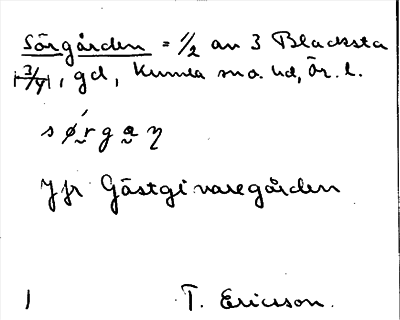 Sörgården = 1/2 av 3 Blacksta
|3/4|, gd, Kumla sn o. hd, Ör. l.
s ø´r g a η
Jfr Gästgivaregården
1 T. Ericsson.